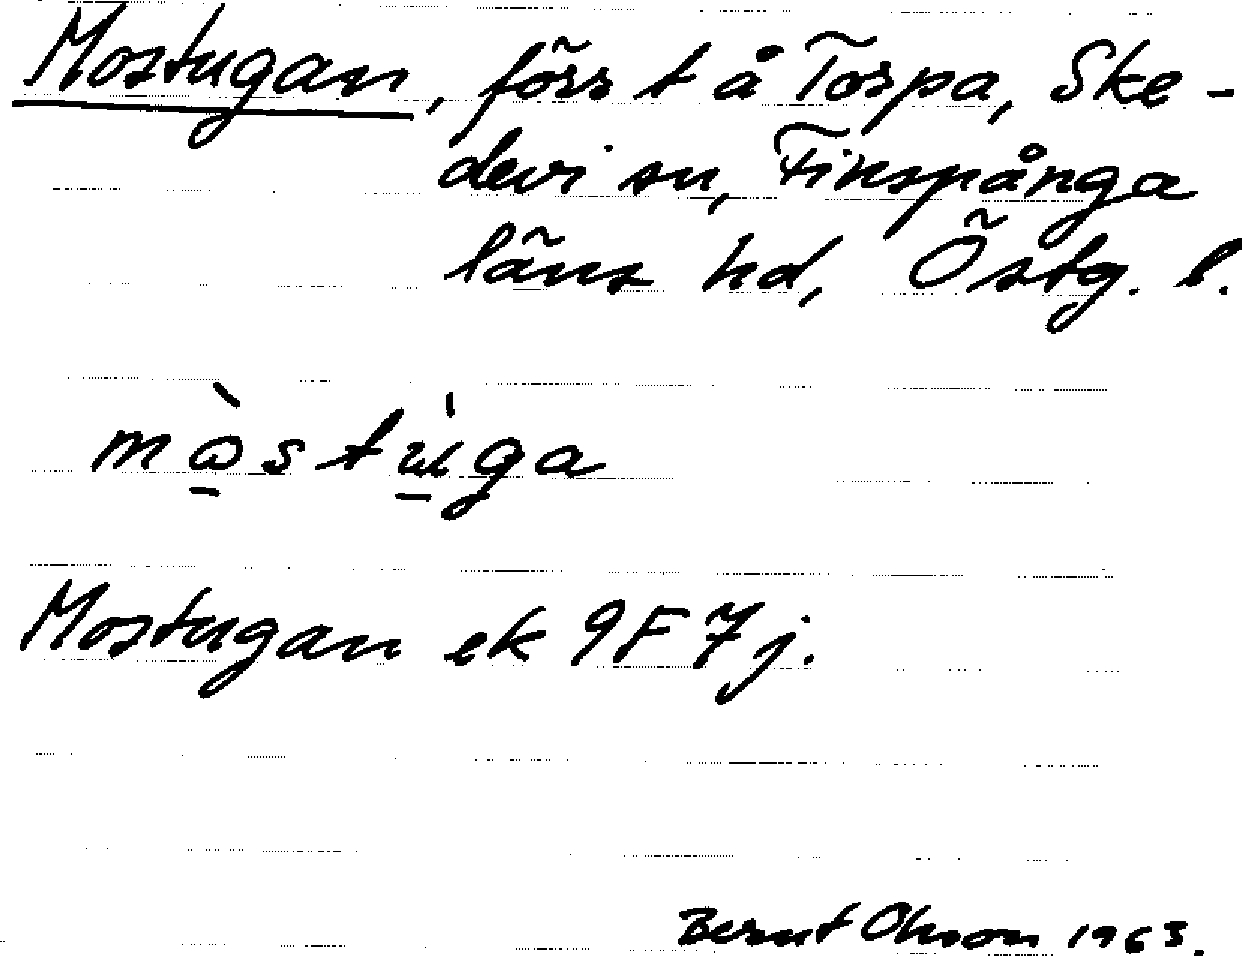 Mostugan, förr t å Torpa, Ske-
devi sn, Finspånga
läns hd, Östg. l.
mὼstu̍ga
Mostugan ek 9F7j.
Bernt Olsson 1963.